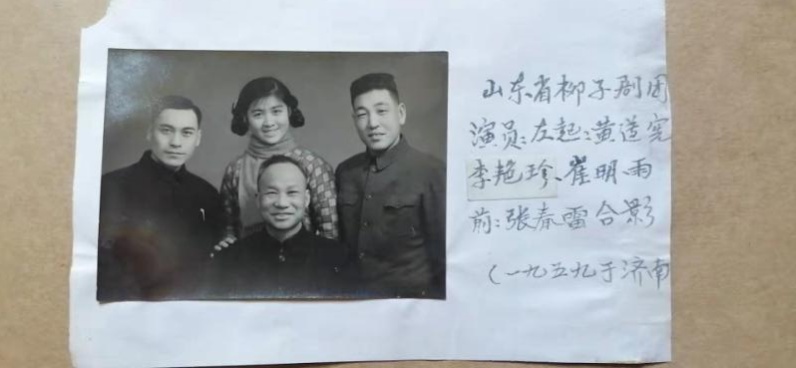 山东省柳子剧团
演员:左起:黄遵宪
李艳珍、崔明雨
前:张春雷合影
(一九五九于济南